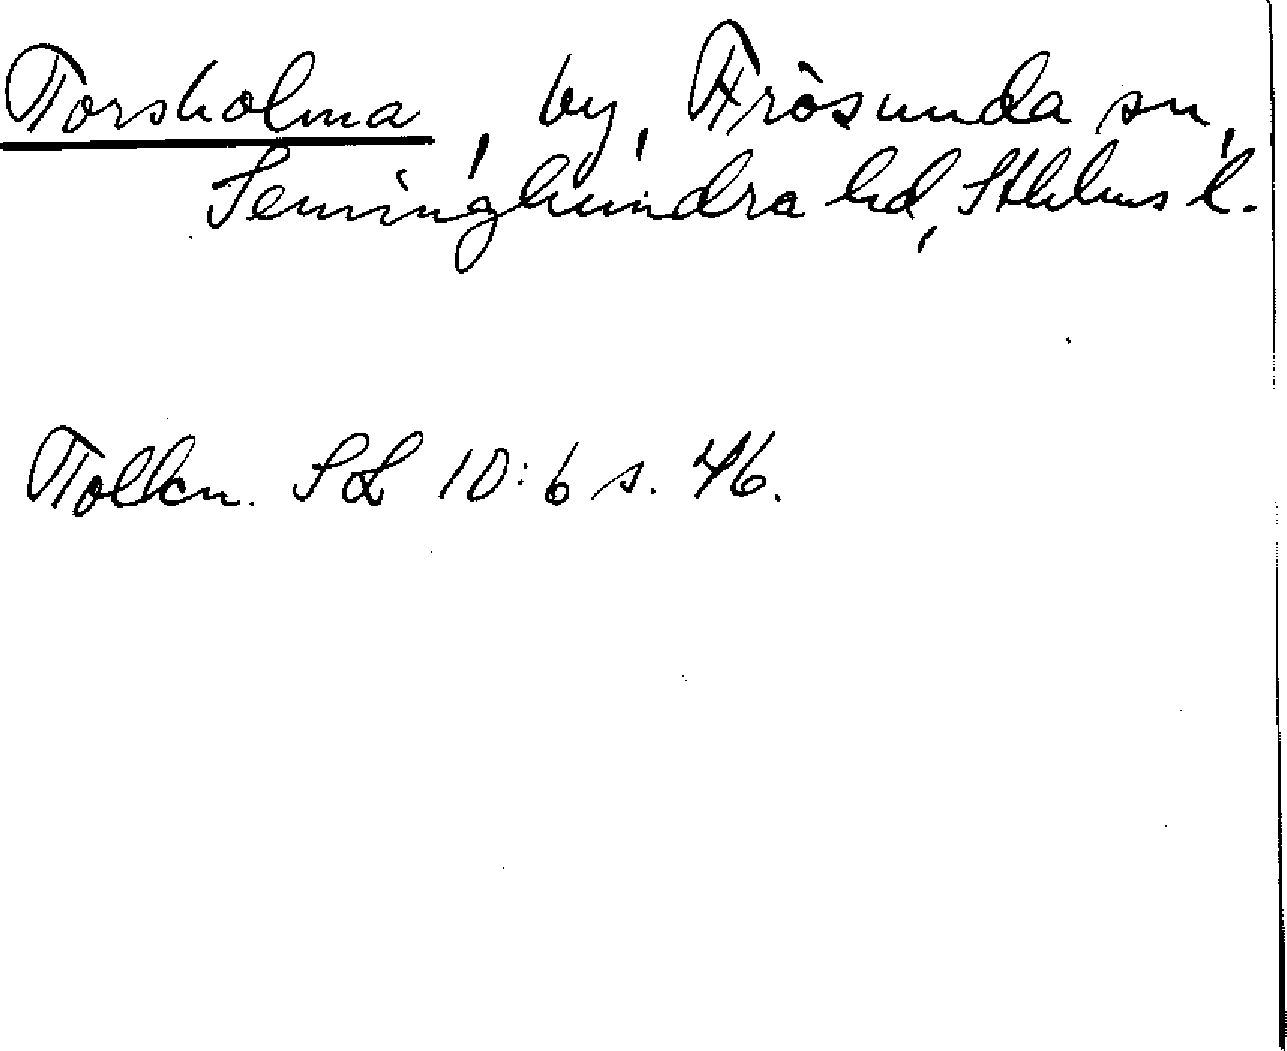 Torsholma, by, Frösunda sn,
Seminghundra hd, Sthlms l.
Tolkn. SL 10:6 s. 46.